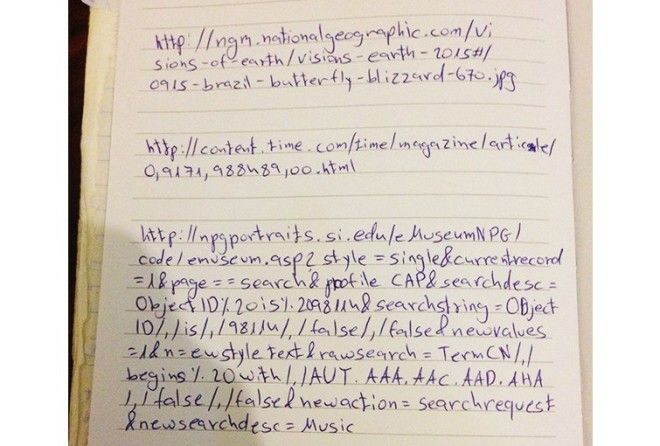 http://ngm.nationalgeographic.com/vi
sions-of-earth/visions-earth-2015#/
0915-brazil-butterfly-blizzard-670.jpg
http://content.time.com/time/magazine/article/
0,9171,988489,00.html
http://npgportraits.si.edu/eMuseumNPG/
code/emuseum.asp? style=single&currentrecord
=1&page==search& profile CAP&searchdesc=
Object ID%20is%2098114&searchstring=Object
ID/,/is/,/98114/,/false/,/false&newvalues
=1&n=ewstyle text&rawsearch=TermCN/,/
begins%20with/,/AUT.AAA.AAC.AAD.AHA
/,/false/,/false&newaction=searchrequest
&newsearchdesc=Music